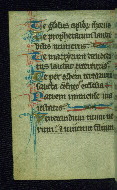 Te gloriosus apostolorum chorus
Te prophetarum lauda
bilis numerus
Te martyrum candida
tus laudat exercitus
Te per orbem terrarum
sancta confitetur ecclesia
Patrem immense ma
iestatis
Venerandum tuum ve
rum et unicum filium